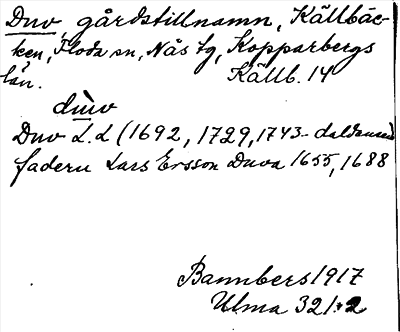 Duv, gårdstillnamn, Källbäc-
ken, Floda sn, Nås tg, Kopparbergs
län. Källb. 14
dùv
Duv L.L (1692, 1729, 1743 -
fadern Lars Ersson Duva 1655, 1688
Bannbers 1917
Ulma 321:2